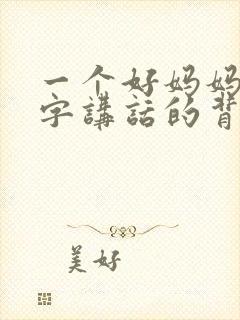 一个好妈妈
字講話的背
美好